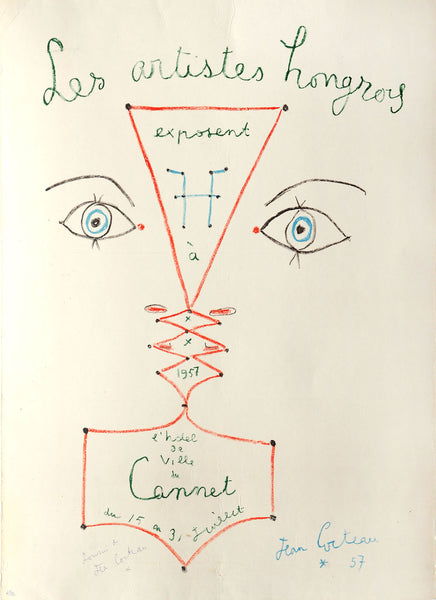 Les artistes hongrois
exposent
H
à
1957
l'hôtel
de
Ville
du
Cannet
du 15 au 31 Juillet
Jean Cocteau
* 57